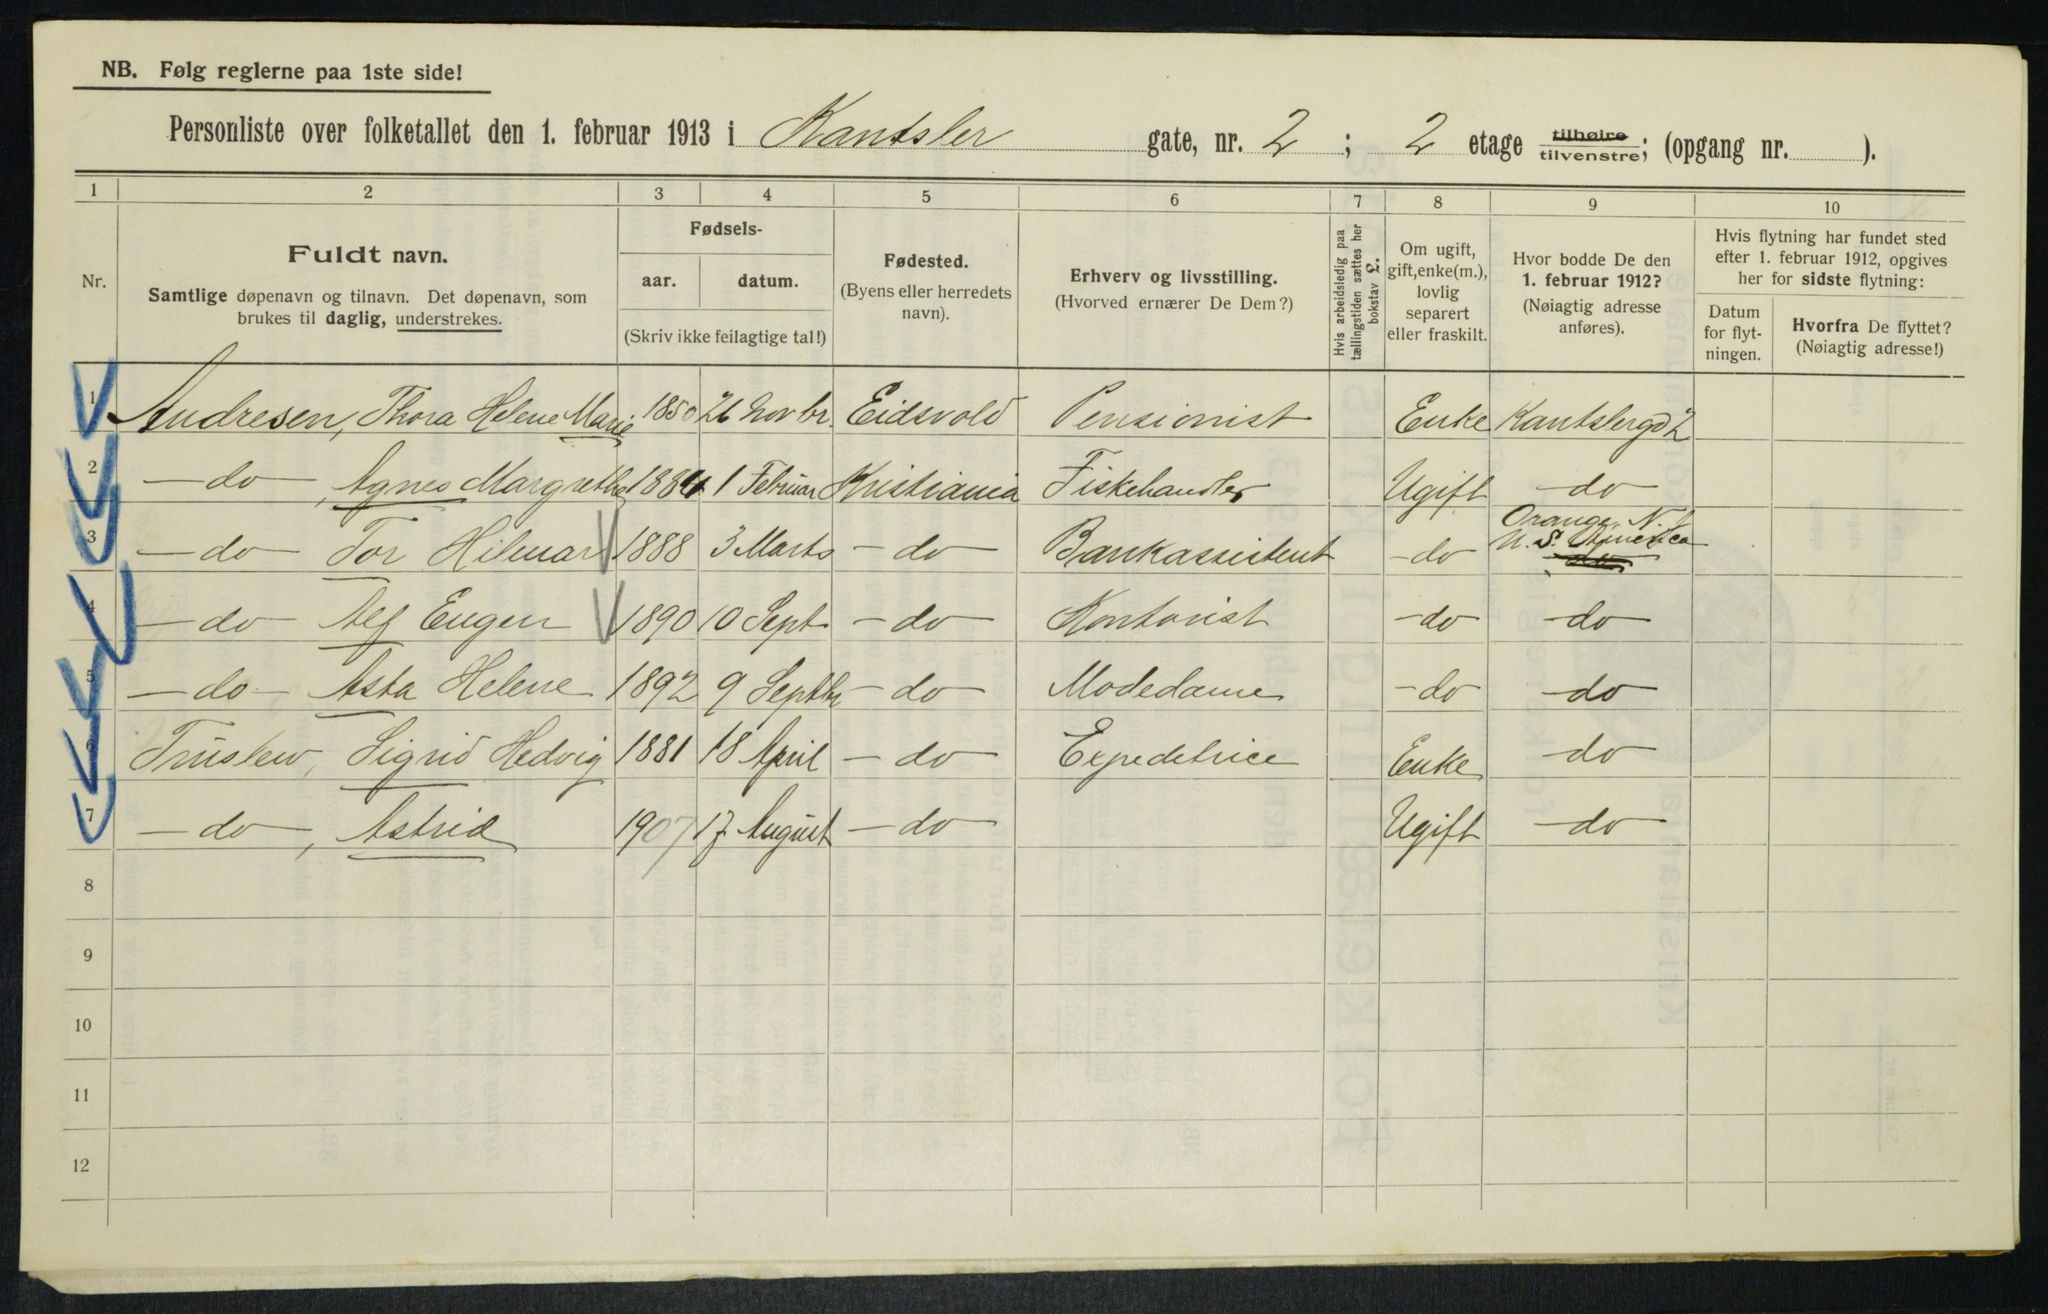 NB. Følg reglerne paa 1ste side!
Personliste over folketallet den 1. februar 1913 i Kantsler gate, nr. 2 ; 2 etage tilhøire/tilvenstre; (opgang nr. ).
1 2 3 4 5 6 7 8 9 10
Nr.
Fuldt navn.
Samtlige døpenavn og tilnavn. Det døpenavn, som
brukes til daglig, understrekes.
Fødsels-
aar. datum.
(Skriv ikke feilagtige tal!)
Fødested.
(Byens eller herredets
navn).
Erhverv og livsstilling.
(Hvorved ernærer De Dem?)
Hvis arbeidsledig paa
tællingstiden sættes her
bokstav £.
Om ugift,
gift, enke(m.),
lovlig
separert
eller fraskilt.
Hvor bodde De den
1. februar 1912?
(Nøiagtig adresse
anføres).
Hvis flytning har fundet sted
efter 1. februar 1912, opgives
her for sidste flytning:
Datum
for flyt-
ningen.
Hvorfra De flyttet?
(Nøiagtig adresse!)
1 Andresen, Thora Helene Marie 1850 26 Novbr. Eidsvold Pensionist Enke Kantslergd 2
2 -do-, Agnes Margrethe 1884 1 Februar Kristiania Fiskehandler Ugift -do-
3 -do- Tor Hilmar 1888 3 Marts -do- Bankassistent -do Orange, N.J.
U.S. America
4 -do- Alf Eugen 1890 10 Sept -do- Kontorist -do -do-
5 -do- Asta Helene 1892 9 Septbr -do- Modedame -do -do-
6 Truslew, Sigrid Hedvig 1881 18 April -do- Expeditrice Enke -do-
7 -do-, Astrid 1907 17 August -do- Ugift -do-
8
9
10
11
12